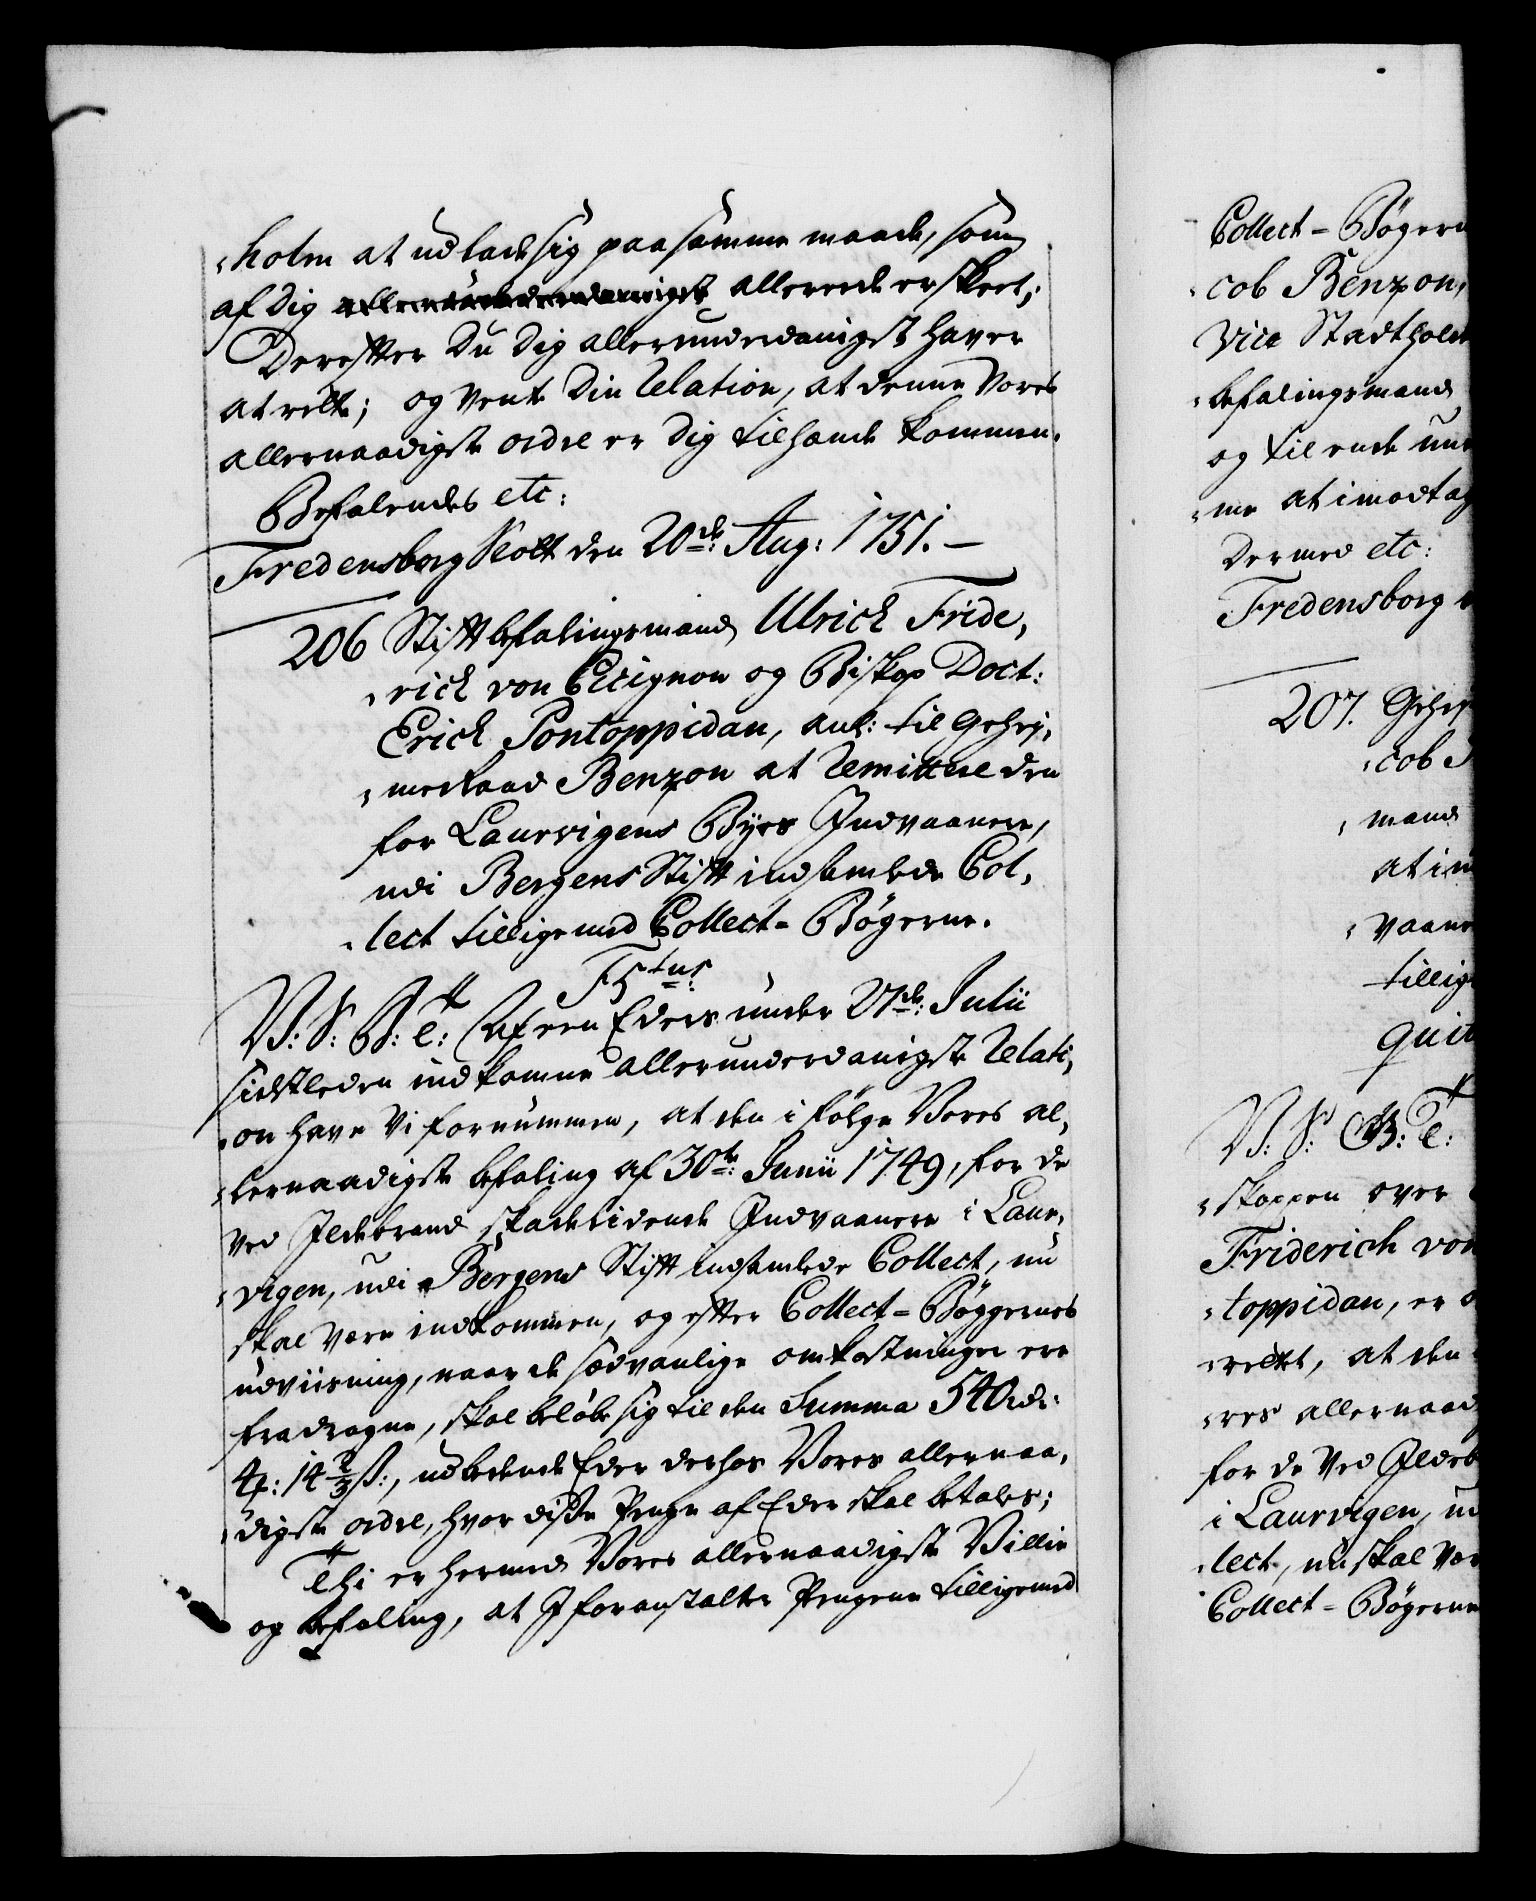 „holm at udlade sig paa samme maade, som
af Dig allerunderdanigst allerede er skeet;
Derefter Du Dig allerunderdanigst haver
at rette; og vente Din Relation, at denne Vores
allernaadigste ordre er Dig tilhænde kommen.
Befalendes etc:
Fredensborg Slott den 20de: Aug: 1751. —
206 Stiftbefalingsmand Ulrich Fride„
„rich von Cicignon og Biskop Doct:
Erich Pontoppidan, anl: til Gehej„
„meRaad Benzon at Remittere den
for Laurvigens Byes Indvaanere,
udi Bergens Stift indsamlede Col„
„lect tilligemed Collect=Bøgerne.
F5tus
V: S: G: T: Af een Eders under 27de: Julii
sidstleden indkomne allerunderdanigste Relati„
„on have Vi fornummen, at den i følge Vores al„
„lernaadigste befaling af 30te: Junii 1749, for de
ved Ildebrand skadelidende Indvaanere i Laur„
„vigen, udi Bergens Stift indsamlede Collect, nu
skal være indkommen, og efter Collect=Bøggernes
udviisning, naar de sædvanlige omkostninger ere
fradragne, skal beløbe sig til den Summa 540 rdr:
4 ꝑ: 14 2/3 ß:, udbedende Eder derhos Vores allernaa„
„digste ordre, hvor disse Penge af Eder skal betales;
Thi er hermed Vores allernaadigste Villie
og befaling, at I foranstalter Pengene tilligemed
Collect=Bøgern
„cob Benzon,
Vice Stadthold
„befalingsmand
og til ende
„me at imodtag
Dermed etc:
Fredensborg
207. Gehej
„cob
„mand
at im
„vaane
tillig
quit
V: S: G: T:
„skoppen over
Friderich von
„toppidan, er
„rettet, at den
„res allernaad
for de ved Ildeb
i Laurvigen, ud
„lect, nu skal vær
Collect=Bøgerne